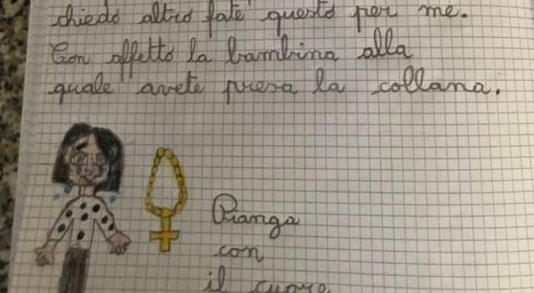 chiedo altro fate questo per me.
Con affetto la bambina alla
quale avete presa la collana.
Pianga
con
il cuore